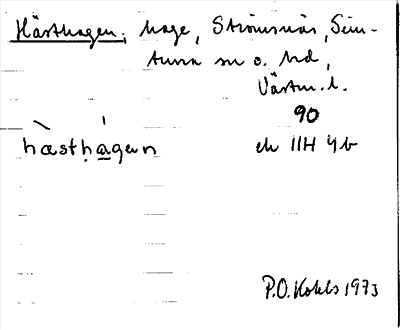 Hästhagen, hage, Strömsnäs, Sem-
turna sn o. hd,
Västm. l.
90
hæsthagen ek 11H 4b
P.O. Kohls 1973